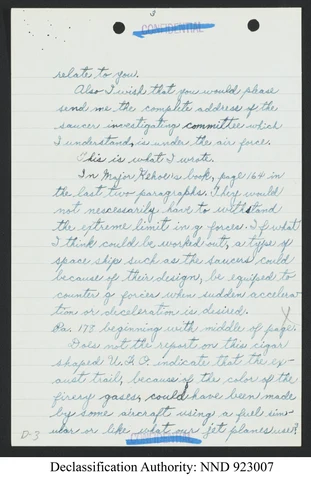 3
CONFIDENTIAL
relate to you.
Also I wish that you would please
send me the complete address of the
saucer investigating committee which
I understand, is under the air force.
This is what I wrote.
In Major Kehoe's book, page 164 in
the last two paragraphs. They would
not nescessarily have to withstand
the extreme limit in g forces. If what
I think could be worked out, a type of
space ship such as the saucers could
because of their design, be equiped to
counter g forces when sudden accelera-
tion or diceleration is desired.
Par. 173 beginning with middle of page.
Does not the report on this cigar
shaped U.F.O. indicate that the ex-
aust trail, because of the color of the
firery gases, could have been made
by some aircraft using a fuel sim-
ular or like what our jet planes use?
D-3
CONFIDENTIAL
Declassification Authority: NND 923007